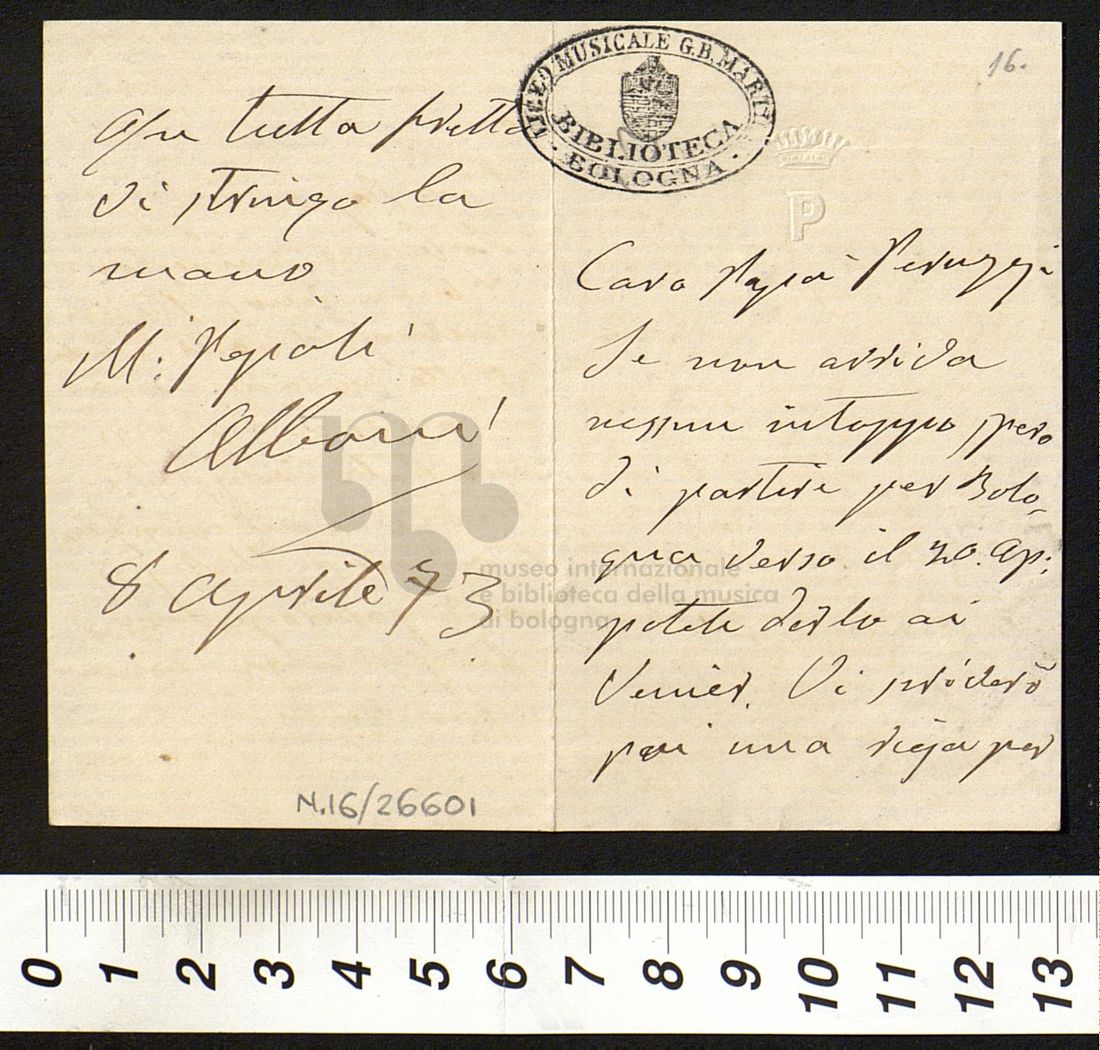 16.
LICEO MUSICALE G.B. MARTINI
BIBLIOTECA
BOLOGNA
P
Caro Papà Peruzzi
Se non arriva
nessun intoppo spero
di partire per Bolo-
gna verso il 20. Ap:
potete dirlo ai
Venier. Vi scriverò
poi una riga per
tutta fretta
vi stringo la
mano
M: Pepoli
Alboni
8 Aprile 73
N.16/26601
museo internazionale
e biblioteca della musica
di bologna
0 1 2 3 4 5 6 7 8 9 10 11 12 13